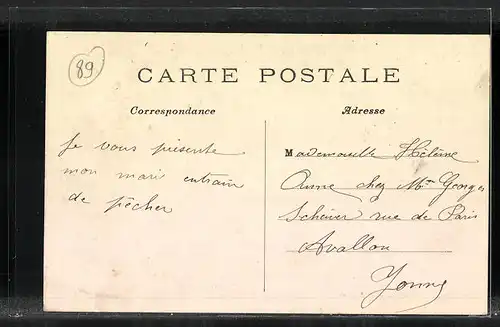 89
CARTE POSTALE
Correspondance
Adresse
Je vous présente
mon maris entrain
de pêcher
Mademoiselle Hélène
Anne chez Mr Georges
rue de Paris
Avallon
Yonne